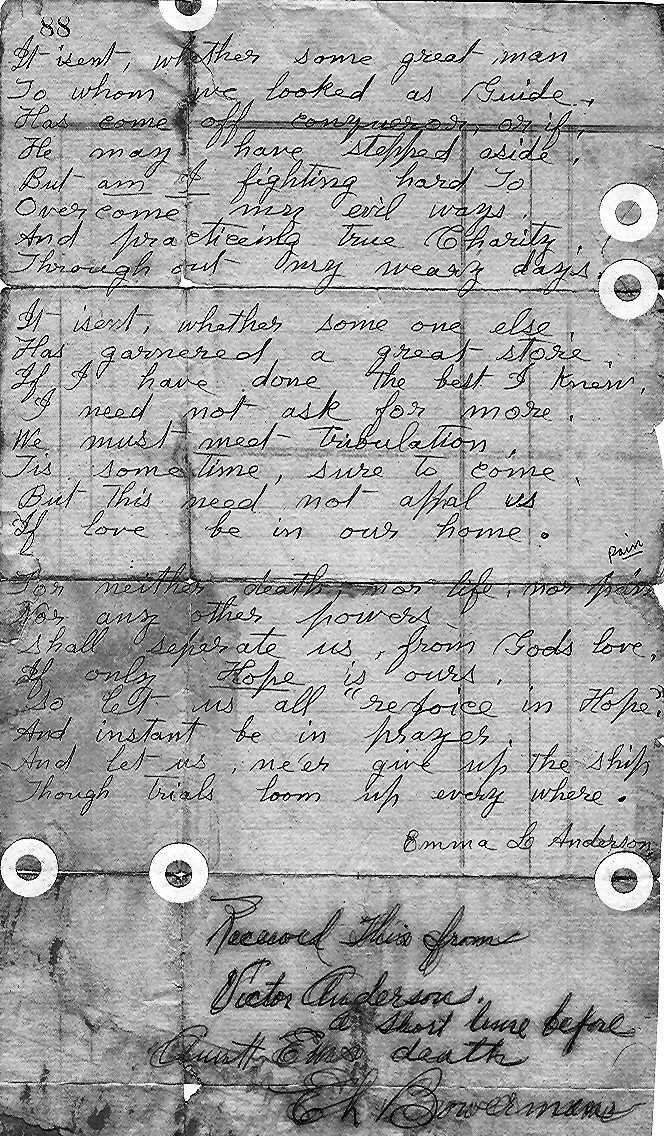 88
It isent, whether some great man
To whom we looked as Guide,
Has come off conqueror, or if,
He may have stepped aside,
But am I fighting hard To
Overcome my evil ways.
And practiceing true Charity,
Through out my weary days.
It isent, whether some one else,
Has garnered a great store
If I have done the best I knew,
I need not ask for more.
We must meet tribulation,
Tis sometime, sure to come,
But this need not appal us
If love be in our home.
pain
For neither death, nor life, nor pain
Nor any other powers
Shall seperate us, from Gods love,
If only Hope is ours.
So let us all "rejoice in Hope"
And instant be in prayer.
And let us, ne'er give up the ship
Though trials loom up every where.
Emma L Anderson
Received This from
Victor Anderson.
a short time before
Aunt Ems death
Eh Bowermans